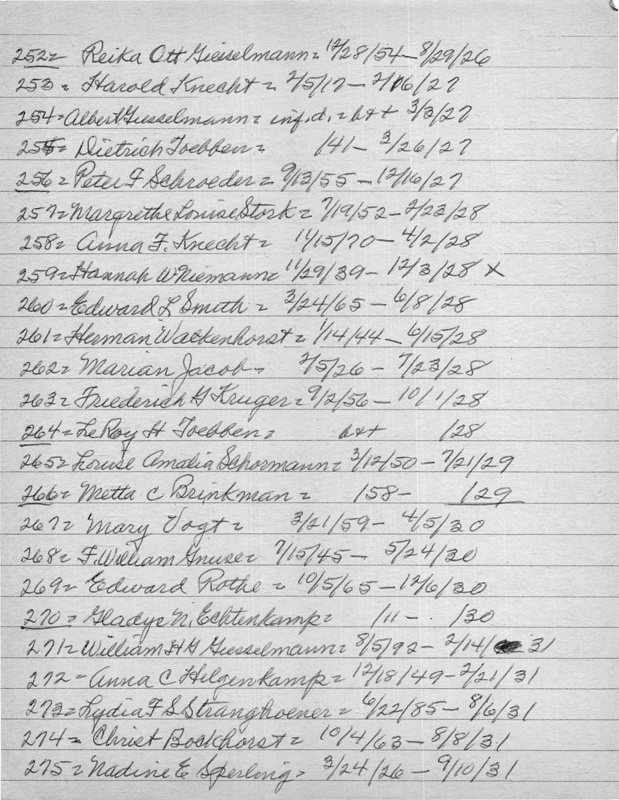 252= Reika Ott Giesselmann= 12/28/54-8/29/26
253= Harold Knecht= 2/5/17-2/16/27
254=Albert Giesselmann= inf.d.=b++ 3/3/27
255= Dietrich Toebben= /41- 3/26/27
256=Peter F Schroeder=9/13/55-12/16/27
257=Margrethe Louise Stork=7/19/52-2/23/28
258= Anna F. Knecht= 11/15/70-4/2/28
259=Hannah W Niemann=11/29/39-12/3/28 X
260=Edward L Smith=3/24/65-6/8/28
261=Herman Wackenhorst=1/14/44-6/15/28
262= Marian Jacob= 2/5/26-7/23/28
263=Friederich H Kruger=9/2/56-10/1/28
264=LeRoy H Toebben= b++ /28
265=Louise Amalia Schormann=3/12/50-7/21/29
266=Metta C Brinkman= /58- /29
267= Mary Vogt= 3/21/59-4/5/30
268=F.William Gnuse= 7/15/45-5/24/30
269=Edward Rothe=10/5/65-12/6/30
270= Gladys N. Echtenkamp= /11- /30
271=William H G Giesselmann=8/5/92-2/14/31
272=Anna C Hilgenkamp=12/18/49-2/21/31
273=Lydia F S Stranghoener=6/22/85-8/6/31
274= Christ Bockhorst=10/4/63-8/8/31
275=Nadine E Sperling=3/24/26-9/10/31